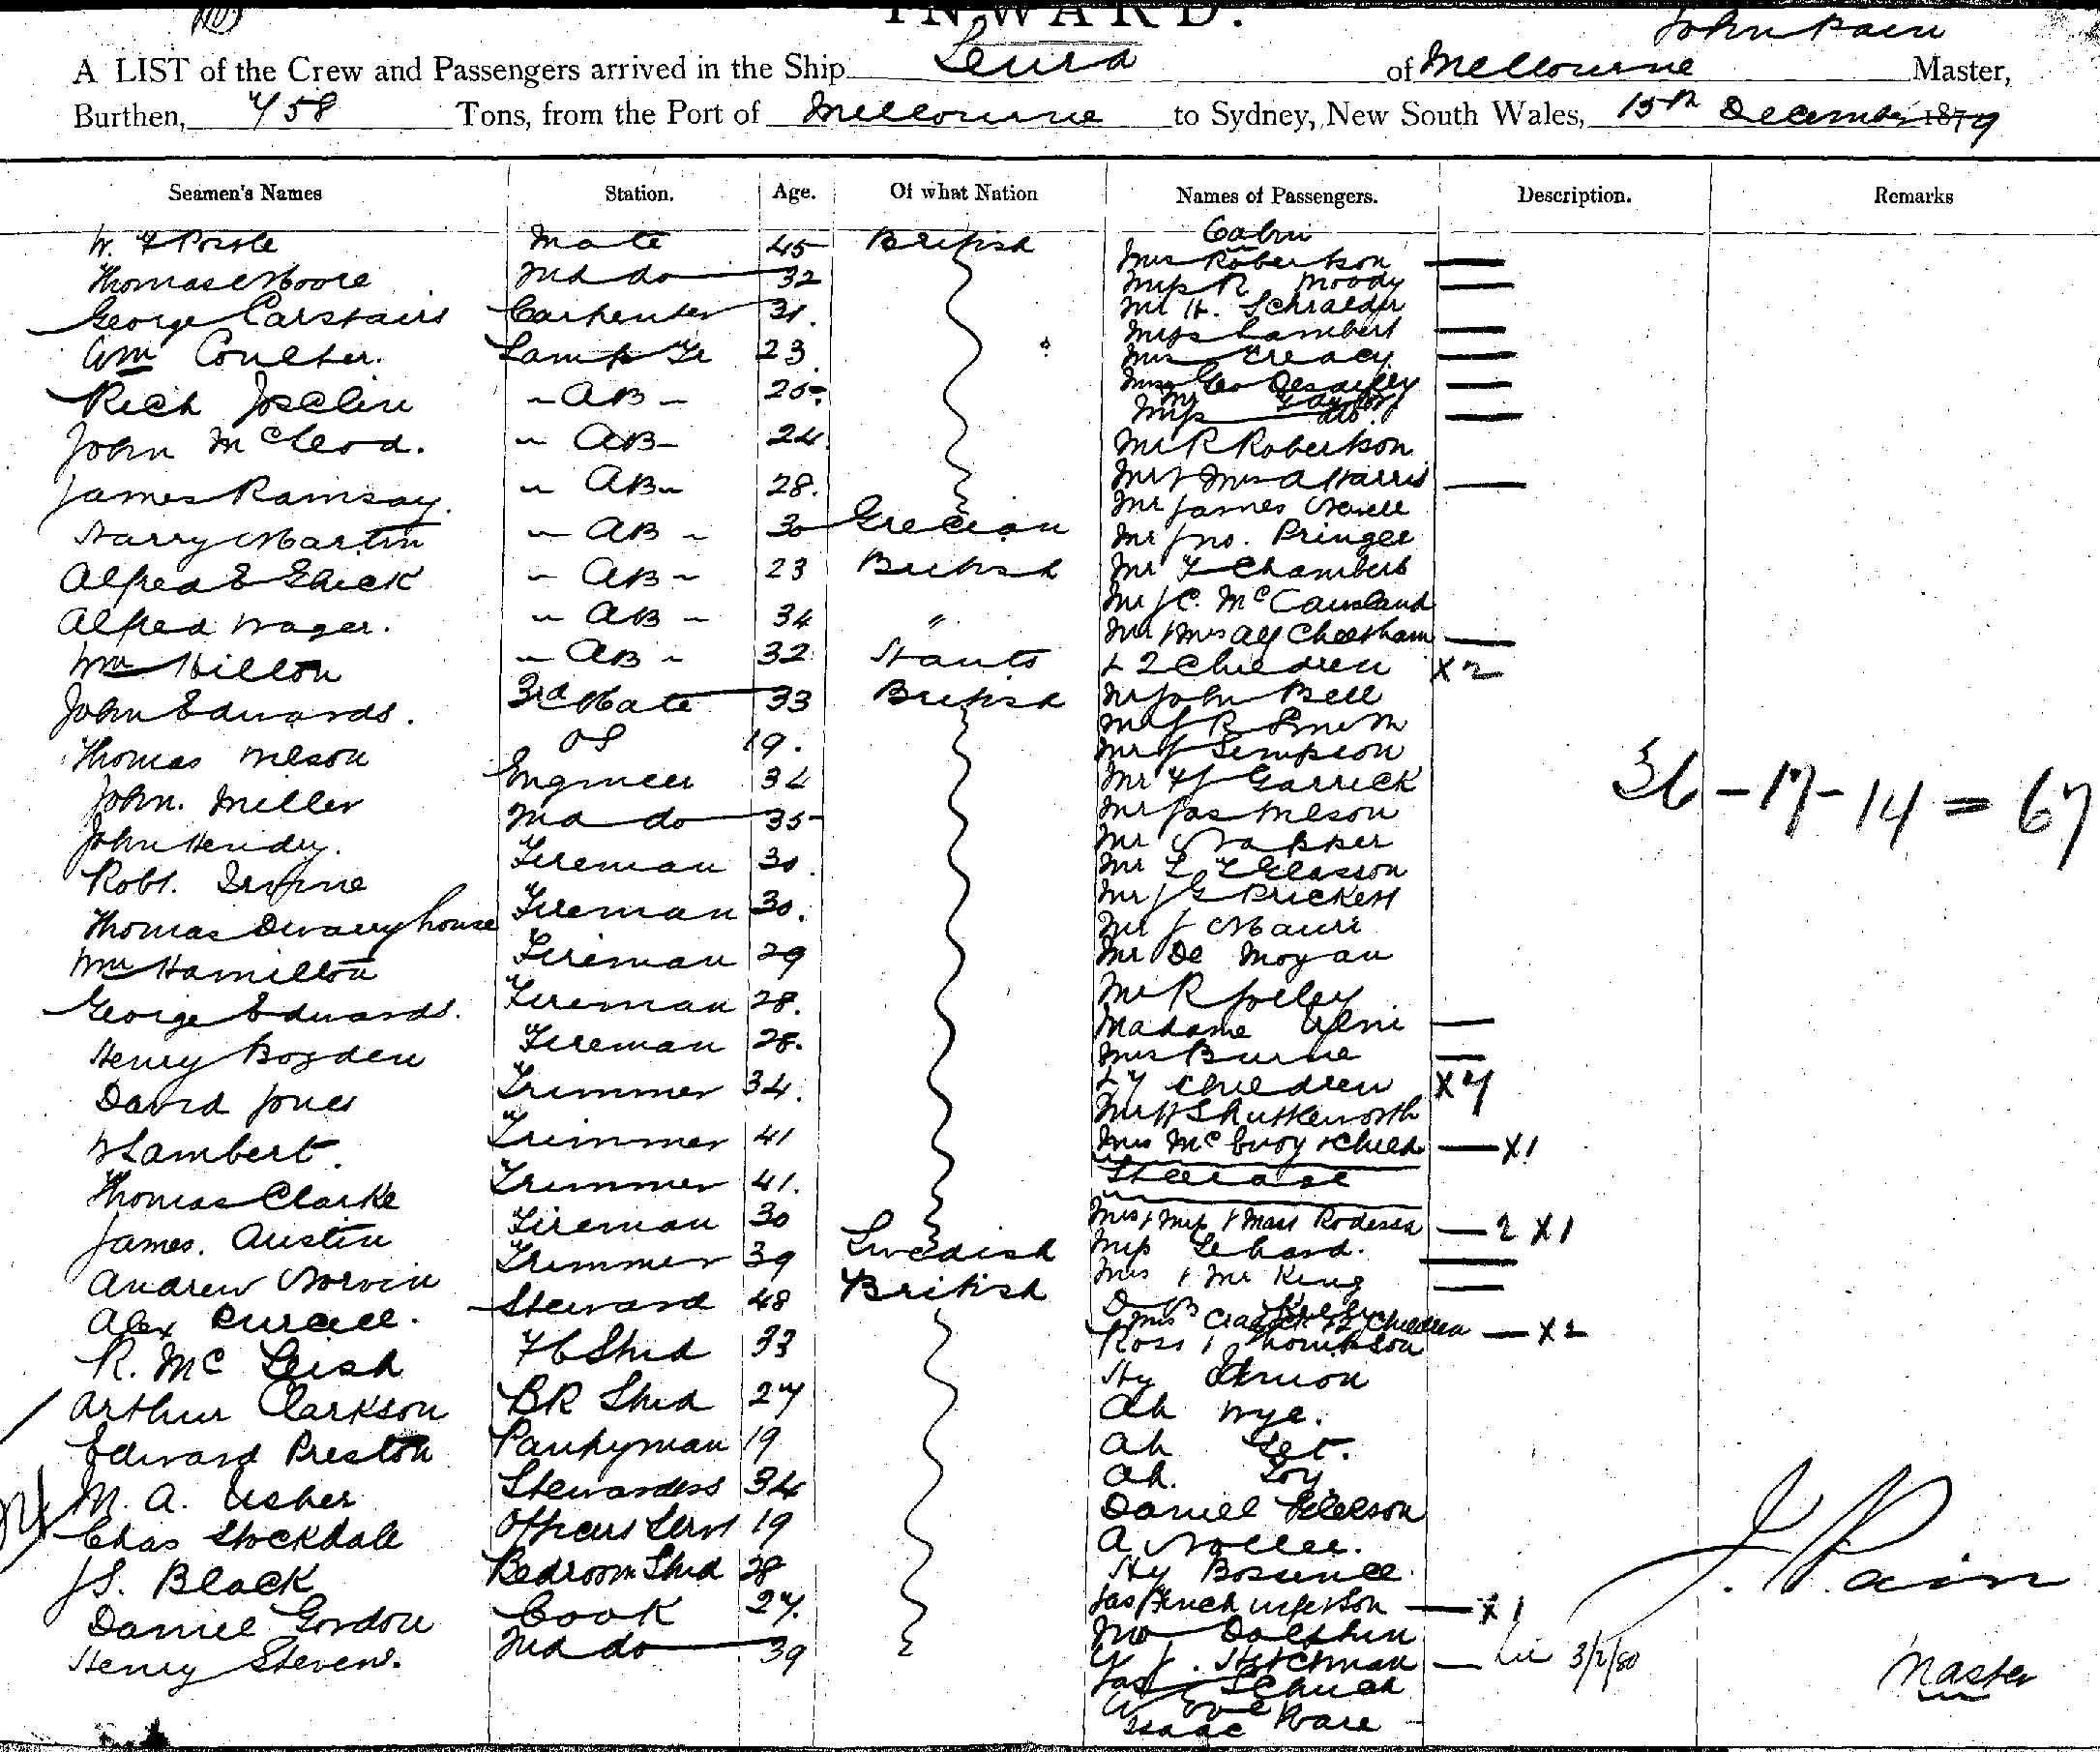 INWARD.
John Pain
A LIST of the Crew and Passengers arrived in the Ship Leura of Melbourne Master,
Burthen, 758 Tons, from the Port of Melbourne to Sydney, New South Wales, 15th December 1879
Seamen's Names Station. Age. Of what Nation Names of Passengers. Description. Remarks
Cabin
Mate 45 British Mrs Robertson —
Thomas Moore 2nd do 32 Miss R Moody —
George Carstairs Carpenter 31. Mr H. Schraeder
Wm Coulter. Lamp Tr 23 Miss Lambert —
Mrs Creacy —
Rich Joselin - AB - 25 Mrs Geo —
Mr Gaylor
Miss do —
John McLeod. - AB - 24 Mr R Robertson
James Ramsay. - AB - 28. Mr & Mrs A Harris —
Mr James
Harry Martin - AB - 30 Grecian Mr Jno. Pringle
Alfred E - AB - 23 British Mr F Chambers
Mr J C. McCausland
Alfred Wager. - AB - 34 " Mr & Mrs Alf Cheetham —
Wm Hillton - AB - 32 Hants & 2 Children X 2
John Edwards. 3rd Mate 33 British Mr John Bell
Mr J R Smith
Thomas Nelson OS 19. Mr J Simpson
John. Miller Engineer 34 Mr F J Garrick
John Hendry. 2nd do 35 Mr Jas Nelson
Mr Napper
Robt. Irvine Fireman 30. Mr L F Gleeson
Mr J G Prickett
Thomas house Fireman 30. Mr J Mauri
Wm Hamilton Fireman 29 Mr De Moyan
George Edwards. Fireman 28. Mr R Jolley
Madame —
Henry Bogden Fireman 28. Mrs Burne —
David Jones Trimmer 34. & 7 Children X 7
Mr H Shuttleworth
Lambert. Trimmer 41 Mrs McEvoy & Child — X 1
Steerage
Thomas Clarke Trimmer 41.
James. Austin Fireman 30 Mrs, Miss & Mast — 2 X 1
Andrew Trimmer 39 Swedish Miss —
Alex Purcell. Steward 48 British Mrs & Mr King —
Mrs & 2 Children — X 2
R. Mc Leish F C Stwd 33 Ross & Thompson
Hy
Arthur Clarkson BR Stwd 27 Ah Wye.
Edward Preston Pantryman 19 Ah Get.
M. A. Usher Stewardess 34 Ah. Loy
Daniel
Chas Stockdale Officers Servt 19 A
J S. Black Bedroom Stwd 28 Hy
Daniel Gordon Cook 27. Jas — X 1
Henry Stevens. 2nd do 39 Jno Dolphin
—
Jas
Isaac Ware
36 - 17 - 14 = 67
3/2/80
J. Pain
Master